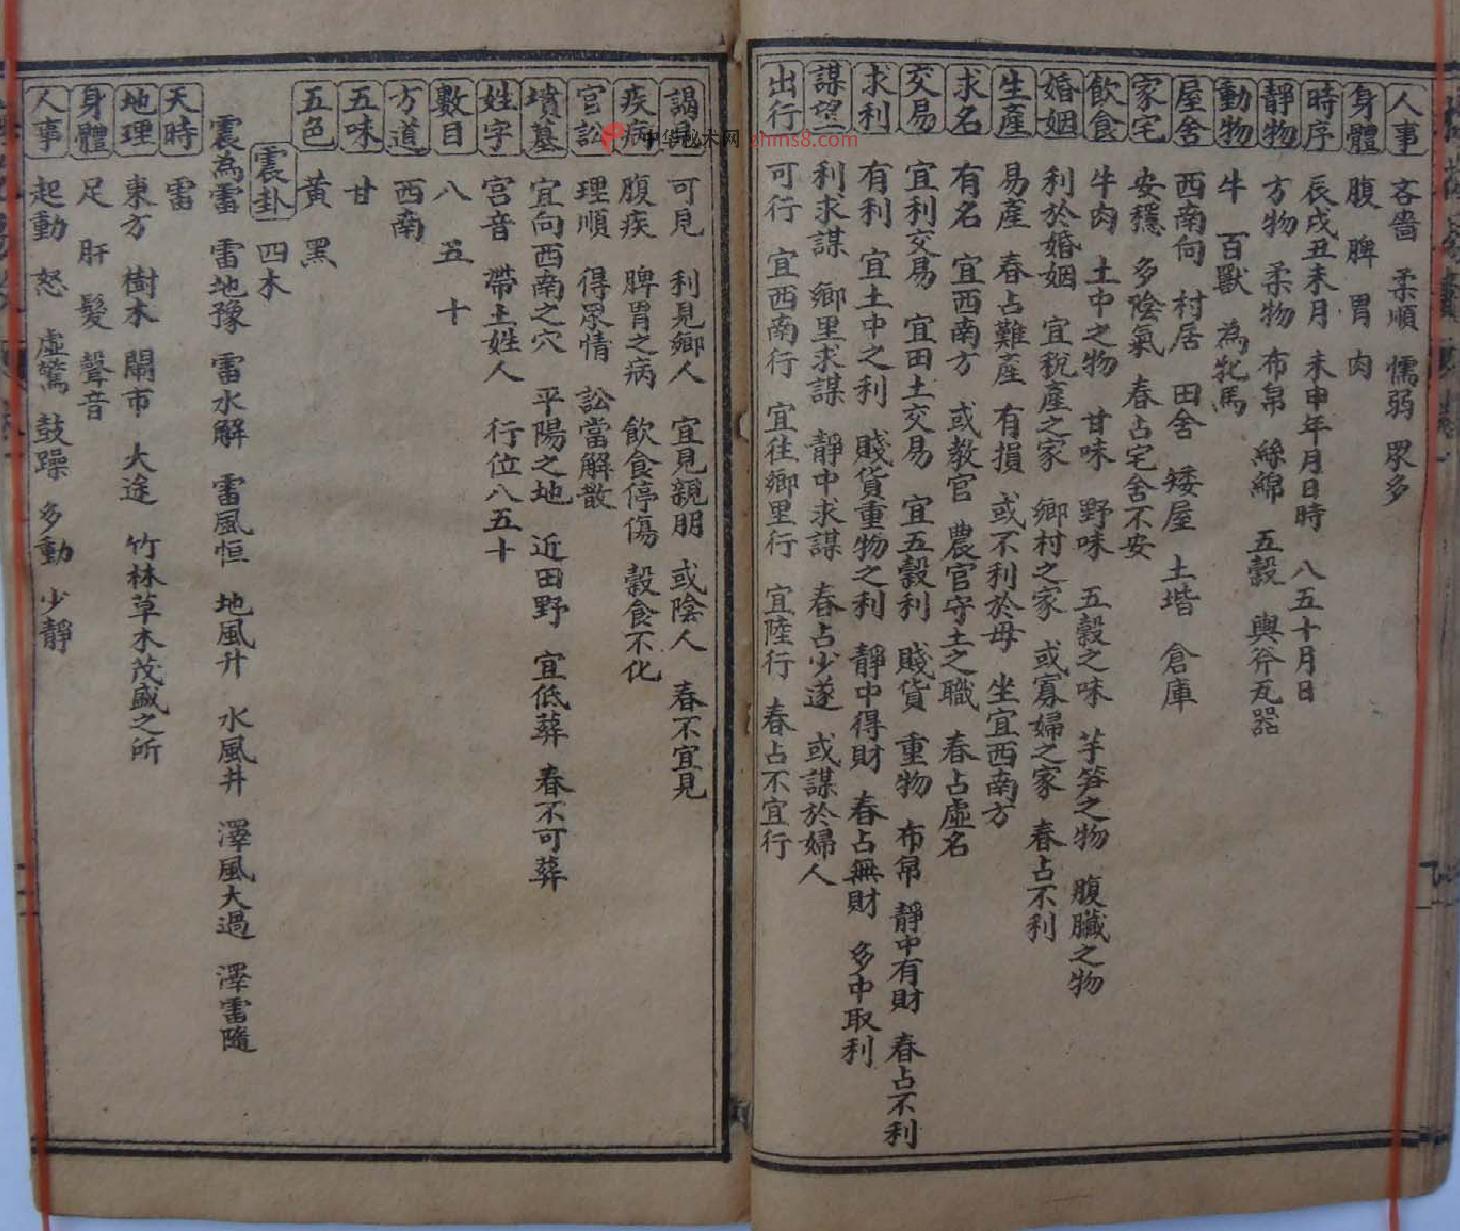 人事 吝嗇 柔順 懦弱 眾多
身體 腹 脾 胃 肉
時序 辰戌丑未月 未申年月日時 八五十月日
靜物 方物 柔物 布帛 絲綿 五穀 輿斧瓦器
動物 牛 百獸 為牝馬
屋舍 西南向 村居 田舍 矮屋 土堦 倉庫
家宅 安穩 多陰氣 春占宅舍不安
飲食 牛肉 土中之物 甘味 野味 五穀之味 芋笋之物 腹臟之物
婚姻 利於婚姻 宜稅產之家 鄉村之家 或寡婦之家 春占不利
生產 易產 春占難產 有損 或不利於母 坐宜西南方
求名 有名 宜西南方 或教官 農官守土之職 春占虛名
交易 宜利交易 宜田土交易 宜五穀利 賤貨 重物 布帛 靜中有財 春占不利
求利 有利 宜土中之利 賤貨重物之利 靜中得財 春占無財 多中取利
謀望 利求謀 鄉里求謀 靜中求謀 春占少遂 或謀於婦人
出行 可行 宜西南行 宜往鄉里行 宜陸行 春占不宜行
謁見 可見 利見鄉人 宜見親朋 或陰人 春不宜見
疾病 腹疾 脾胃之病 飲食停傷 穀食不化
官訟 理順 得眾情 訟當解散
墳墓 宜向西南之穴 平陽之地 近田野 宜低葬 春不可葬
姓字 宮音 帶土姓人 行位八五十
數目 八 五 十
方道 西南
五味 甘
五色 黃 黑
震卦 四木
震為雷 雷地豫 雷水解 雷風恒 地風升 水風井 澤風大過 澤雷隨
天時 雷
地理 東方 樹木 鬧市 大途 竹林草木茂盛之所
身體 足 肝 髮 聲音
人事 起動 怒 虛驚 鼓躁 多動 少靜
中华秘术网 zhms8.com